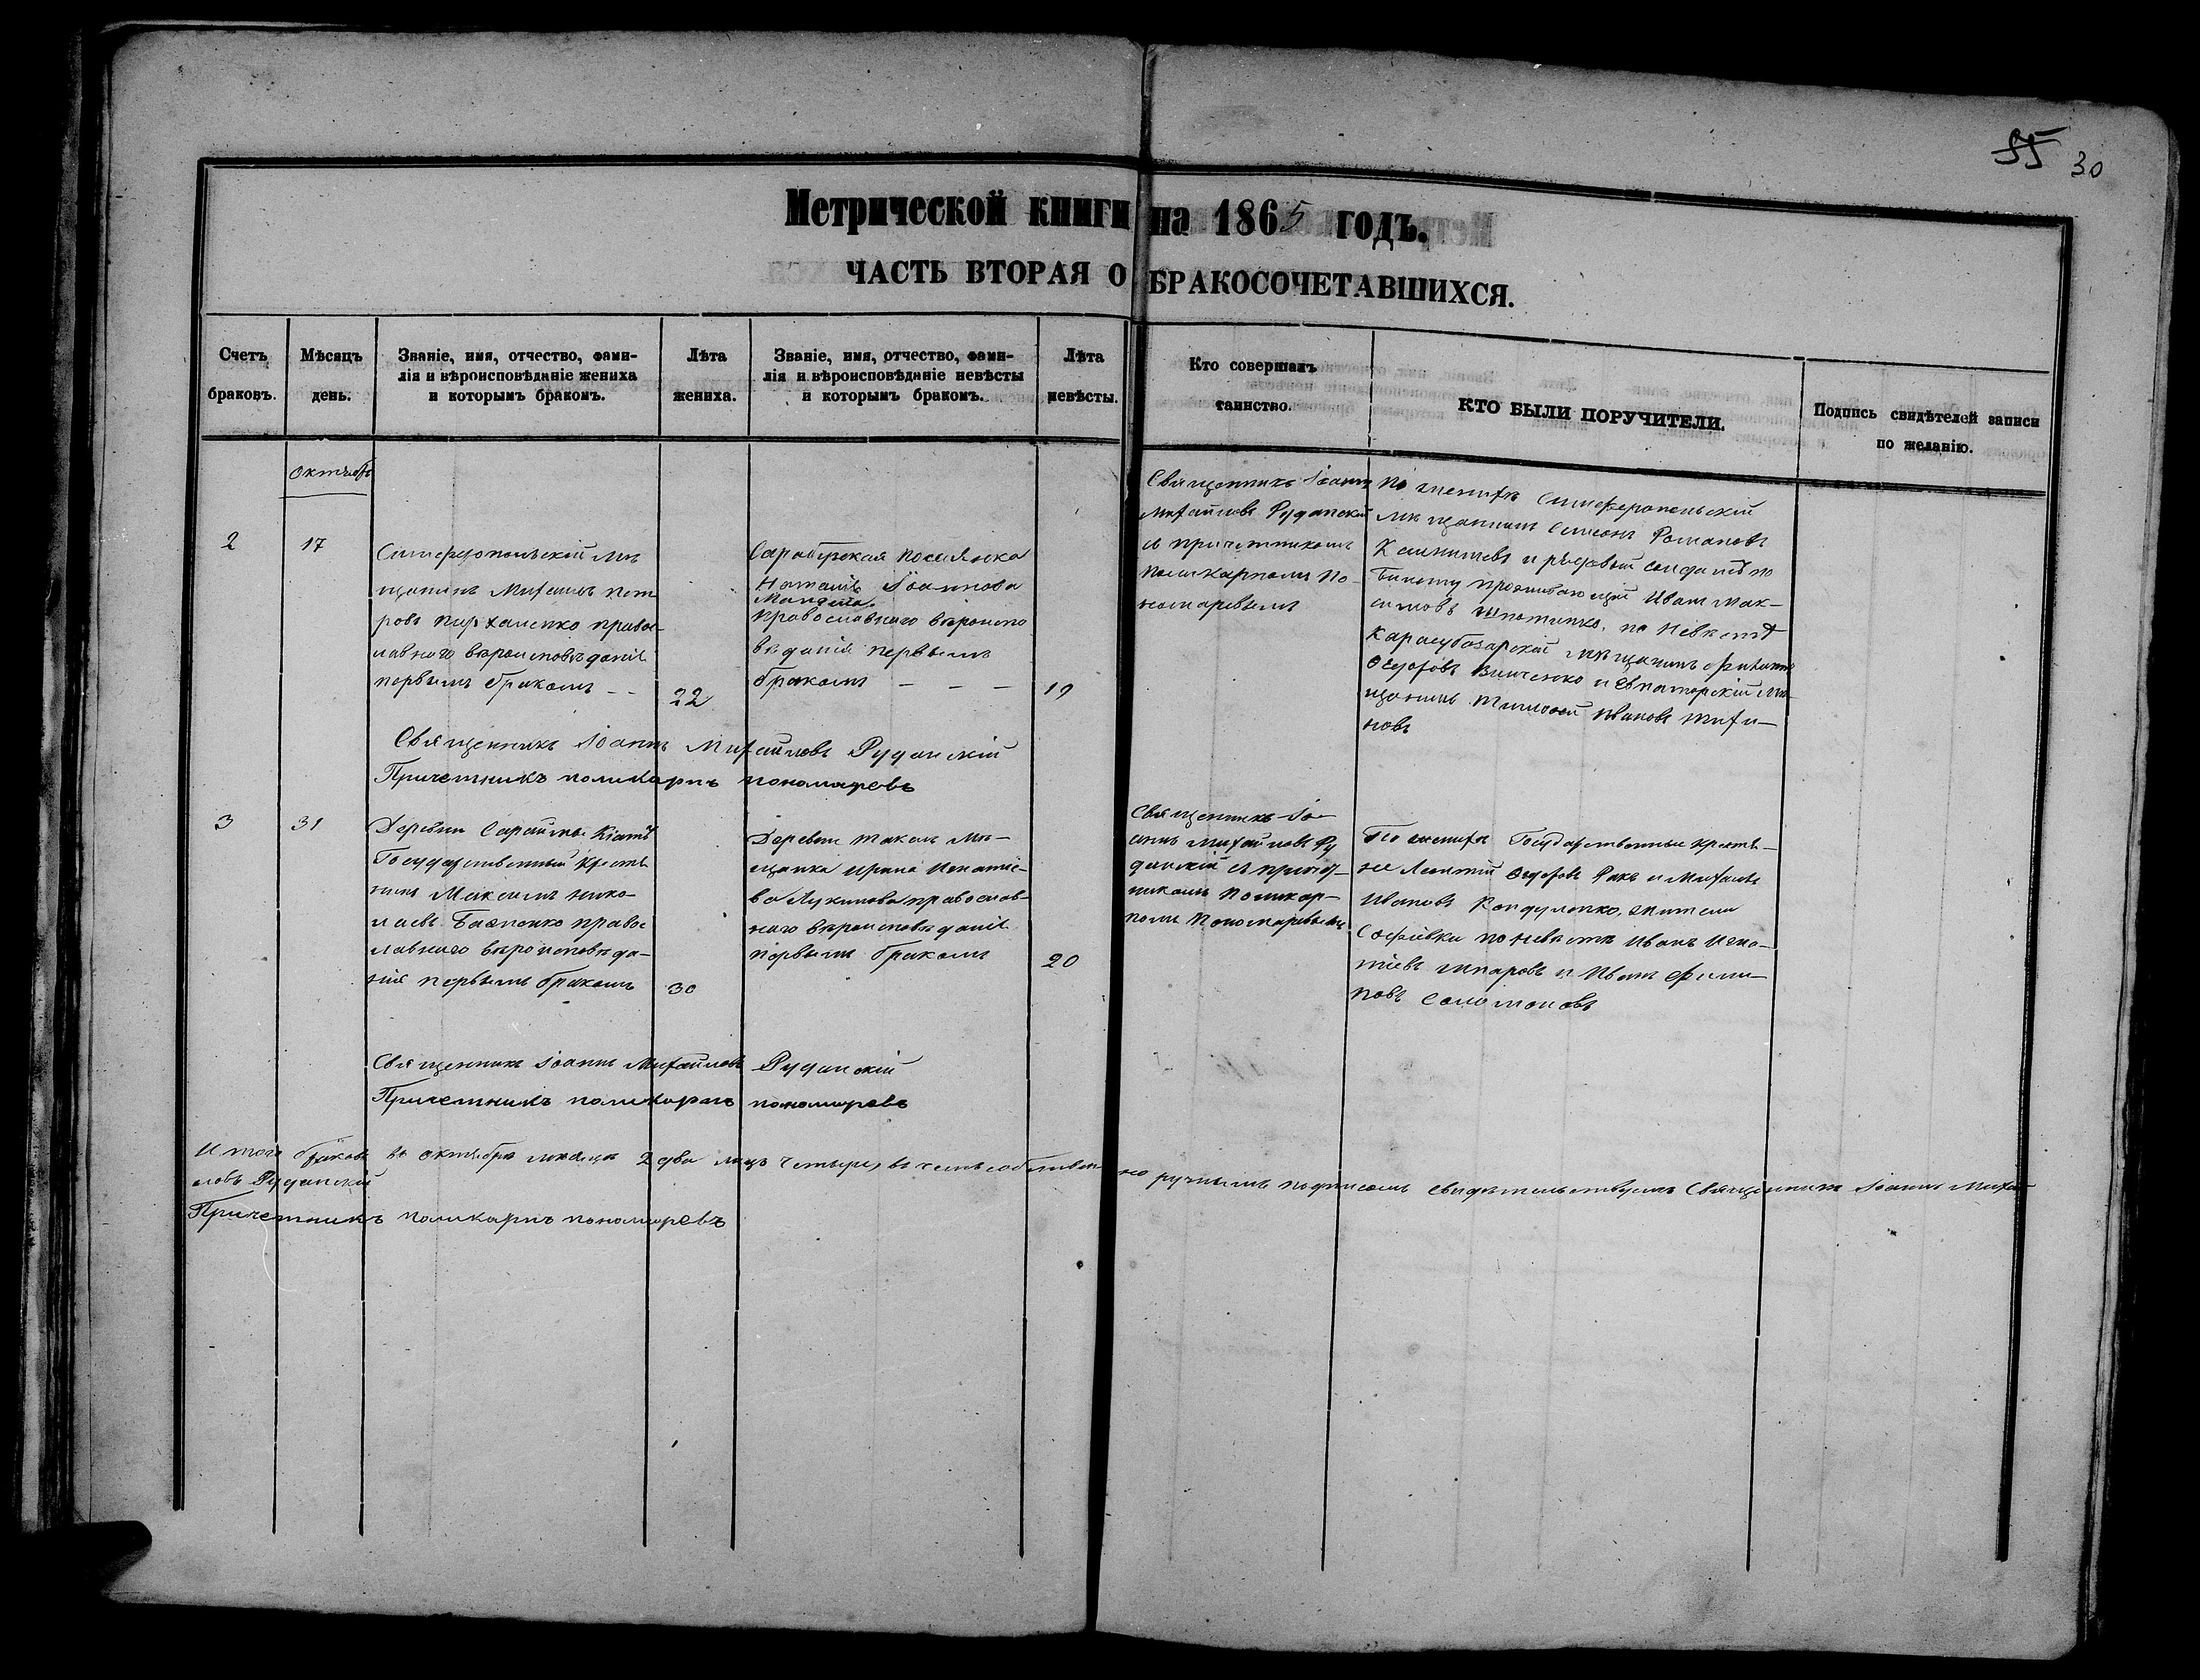 55 30
Метрической книги на 1865 годъ.
ЧАСТЬ ВТОРАЯ О БРАКОСОЧЕТАВШИХСЯ.
Счетъ
браковъ.
Мѣсяцъ
день.
Званіе, имя, отчество, фами-
лія и вѣроисповѣданіе жениха
и которымъ бракомъ.
Лѣта
жениха.
Званіе, имя, отчество, фами-
лія и вѣроисповѣданіе невѣсты
и которымъ бракомъ.
Лѣта
невѣсты.
Кто совершалъ
таинство.
КТО БЫЛИ ПОРУЧИТЕЛИ.
Подпись свидѣтелей записи
по желанію.
Октябрь
2
17
Симферопольскій мѣ
щанинъ Михаилъ Пет
ровъ православ-
лавнаго вѣроисповѣданія
первымъ бракомъ - -
22
Сарабузская поселянска
Наталія Іоаннова
православнаго вѣроиспо
вѣданія первымъ
бракомъ - - -
19
Священникъ Іоаннъ
Михайловъ Руданскій
съ причетникомъ
Поликарпомъ По-
номаревымъ
По женихѣ Симферопольскій
мѣщанинъ Семенъ Романовъ
и рядовый солдатъ по
билету проживающій Иванъ Мак-
симовъ по невѣстѣ
Карасубазарскій мѣщанинъ Филипъ
Федоровъ Винченко и Евпаторскій мѣ-
щанинъ Тимофей Ивановъ
новъ
Священникъ Іоаннъ Михайловъ Руданскій
Причетникъ Поликарпъ Пономаревъ
3
31
Деревни Сарайлы Кіатъ
Государственный крестя
нинъ Максимъ Нико
лаевъ правос
лавнаго вѣроисповѣда-
нія первымъ бракомъ
30
Деревни Такелъ мѣ-
щанка Ирина Игнатіе-
ва Лукинова православ-
наго вѣроисповѣданія
первымъ бракомъ
20
Священникъ Іо-
аннъ Михайловъ Ру
данскій съ причет-
никомъ Поликар-
помъ Пономаревымъ
По женихѣ Государственные крестя-
не Леонтій Федоровъ Ракъ и Михаилъ
Ивановъ Кондуленко, жители
Софіевки по невѣстѣ Иванъ Игна-
тіевъ и Иванъ Фили-
повъ Соломоновъ
Священникъ Іоаннъ Михайловъ Руданскій
Причетникъ Поликарпъ Пономаревъ
Итого браковъ въ октябрѣ мѣсяцѣ 2 два лицъ четыре, въ чемъ собственно ручнымъ подписомъ свидѣтельствуемъ Священникъ Іоаннъ Михай
ловъ Руданскій
Причетникъ Поликарпъ Пономаревъ